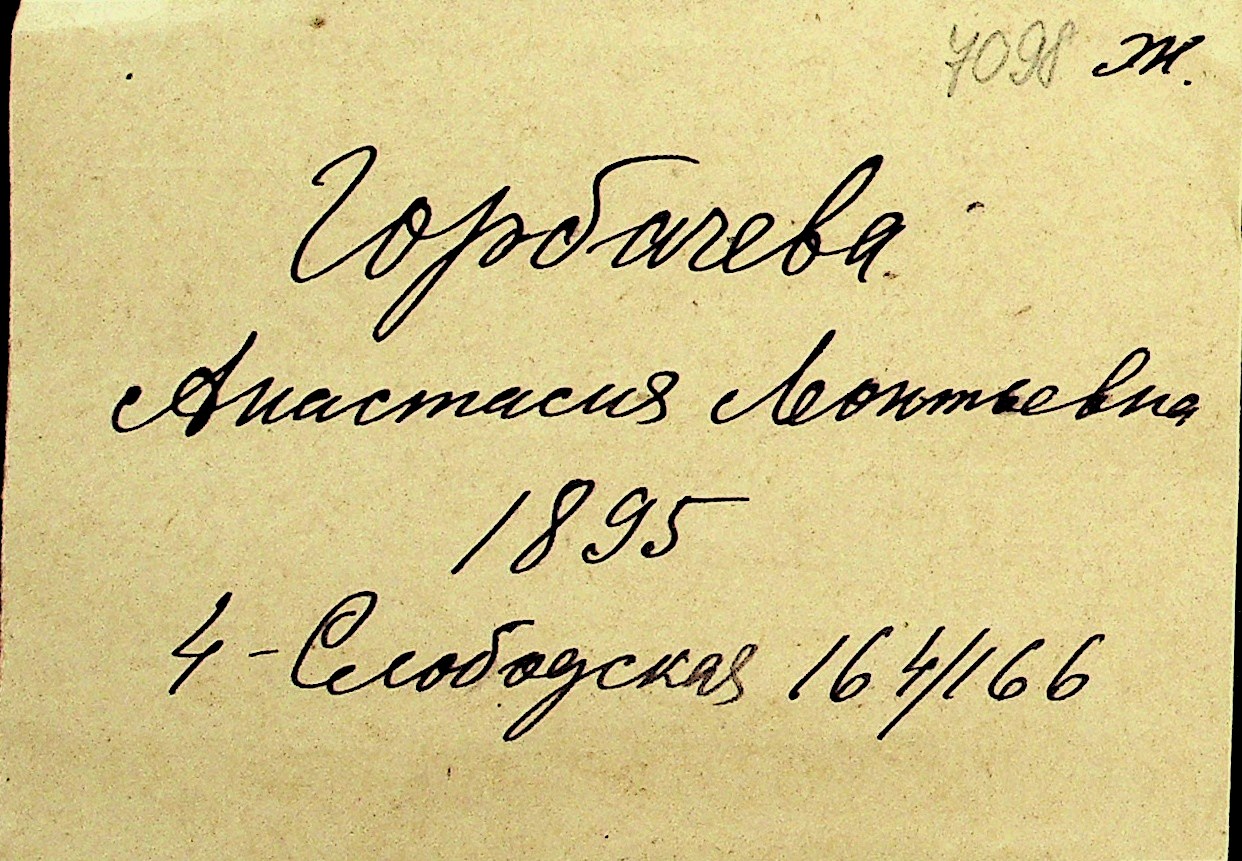 7098 ж.
Горбачева
Анастасия Леонтьевна
1895
4-Слободская 164/166